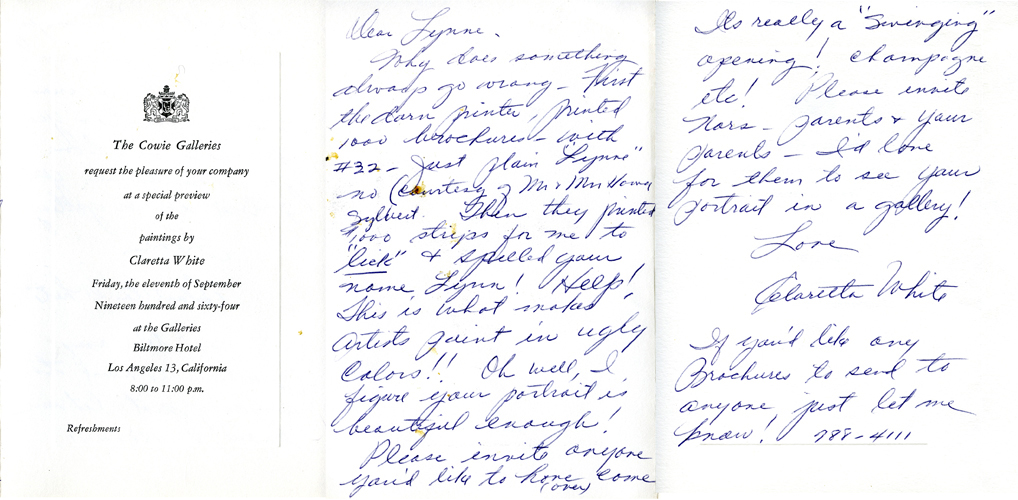 The Cowie Galleries
request the pleasure of your company
at a special preview
of the
paintings by
Claretta White
Friday, the eleventh of September
Nineteen hundred and sixty-four
at the Galleries
Biltmore Hotel
Los Angeles 13, California
8:00 to 11:00 p.m.
Refreshments
Dear Lynne.
Why does something
always go wrong - First
the darn printer, printed
1000 berochures - with
#32 - Just plain "Lynne"
no (Courtesy of Mr & Mrs
Sylvert. Then they printed
1000 strips for me to
"lick" & spelled your
name Lynn! Help!
This is what makes
artists paint in ugly
colors!! Oh well, I
figure your portrait is
beautiful enough!
Please invite anyone
you'd like to have come
(over)
Its really a "Swinging"
opening! Champagne
etc! Please invite
parents & your
parents - I'd love
for them to see your
portrait in a gallery!
Love
Claretta White
If you'd like any
Brochures to send to
anyone, just let me
know! 788-4111